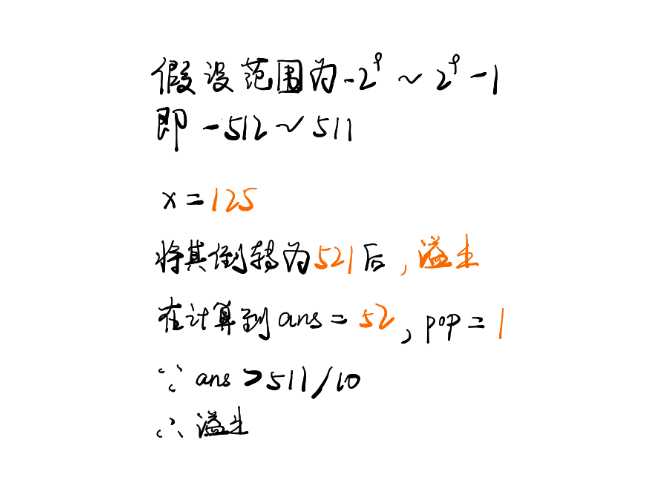 假设范围为-2⁹~2⁹-1
即 -512~511
x=125
将其倒转为521后,溢出
在计算到ans=52,pop=1
∵ ans>511/10
∴ 溢出